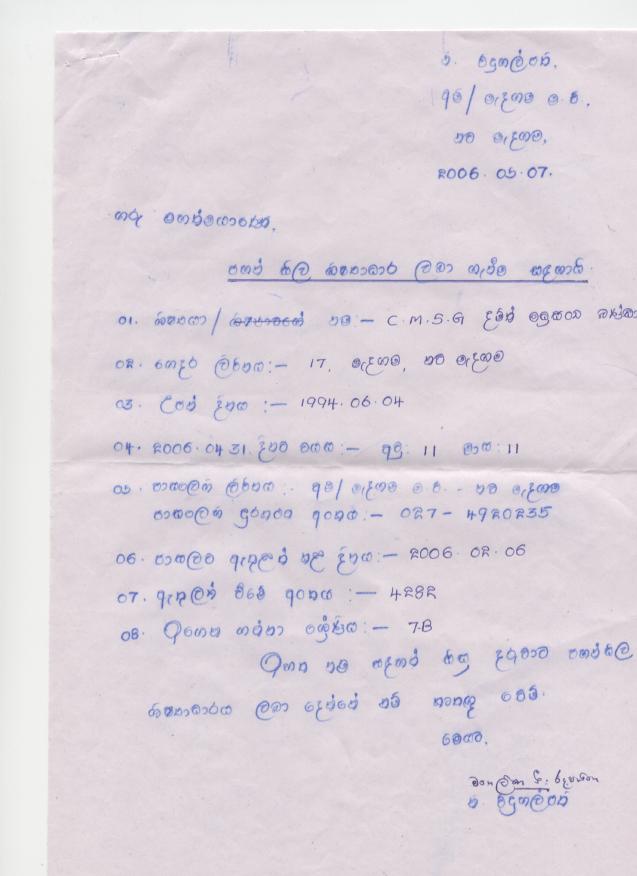 ව. විදුහල්පති,
අම/ මැදගම ම.වි.,
නව මැදගම,
2006.05.07.
ගරු මහත්මයාණෙනි,
පහත් සිට ශිෂ්‍යාධාර ලබා ගැනීම සඳහායි.
01. ශිෂ්‍යයා / නම :– C.M.S.G දමිත් මධුසංඛ
02. ගෙදර ලිපිනය :– 17, මැදගම, නව මැදගම
03. උපන් දිනය :– 1994.06.04
04. 2006.04.31 දිනට වයස :– අවු: 11 මාස: 11
05. පාසලේ ලිපිනය :- අම/ මැදගම ම.වි. - නව මැදගම
පාසලේ දුරකථන අංකය :– 027 – 4920235
06. පාසලට ඇතුළත් කළ දිනය :– 2006.02.06
07. ඇතුලත් වීමේ අංකය :– 4282
08. ඉගෙන ගන්නා ශ්‍රේණිය :– 7-B
ඉහත නම් සඳහන් සිසු දරුවාට
ශිෂ්‍යාධාරය ලබා දෙන්නේ නම් කෘතඥ වෙමි.
මෙයට,
ව. විදුහල්පති